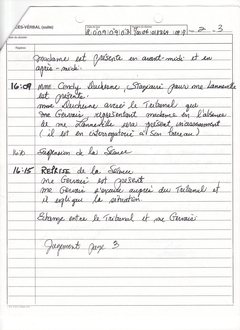 CÈS-VERBAL (suite)
2 - 3
Madame est présente en avant-midi et en
après-midi.
16:09 Mme Cindy Duchesne, Stagiaire pour me Lannoville
est présente.
mme Duchesne avise le Tribunal que
me Gervais représentant madame en l'absence
de me Lannoville sera présent incessamment
( il est en interrogatoire à son bureau)
16:10 Suspension de la Séance
16:15 REPRISE de la Séance
me Gervais est présent
me Gervais s'excuse auprès du Tribunal et
il explique la situation.
Échange entre le Tribunal et me Gervais
Jugement page 3